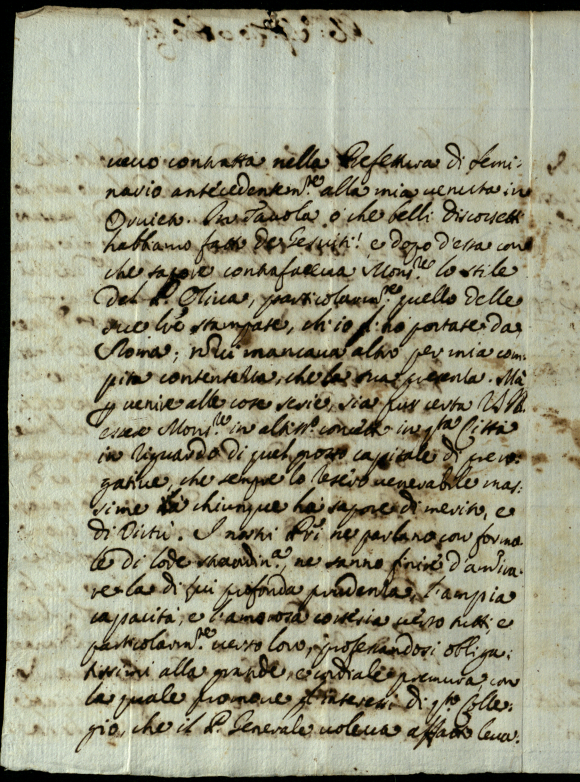 vevo contratta nella Prefettura di Semi-
nario antecedentem.te alla mia venuta in
Orvieto. In Tavola o che belli discorsetti
habbiamo fatti de Gesuiti! e dopo d'essa con
che sapore contrafaceva Mons.re lo stile
del P. Oliva, particolarm.te quello delle
due lre stampate, ch'io gl'ho portate da
Roma; nè vi mancava altro per mia com-
pita contentezza, che la sua presenza. Mà
p venire alle cose serie, sia pur certa V.R.
essere Mons.re in altiss.o concetto in q.sta Città
in riguardo di quel grosso capitale di prero-
gative, che sempre lo resero venerabile mas-
sime à chiunque ha sapore di merito, e
di Virtù. I nostri PPri ne parlano con formo-
le di lode straordin.a, ne sanno finire d'am'ira-
re la di lui profonda prudenza, l'ampia
capacità, e l'amorosa cortesia verso tutti, e
particolarm.te verso loro, professandosi obliga-
tissimi alla grande, e cordiale premura con
la quale promove gl'interessi di q.sto Colle-
gio, che il P. Generale voleva affatto leva-